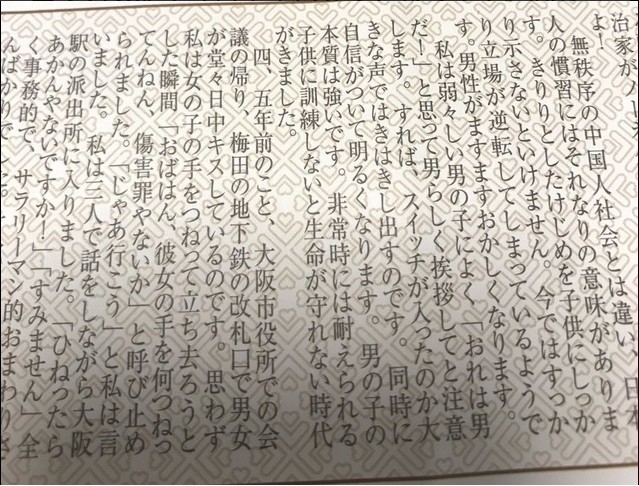 治家が
よ！
無秩序の中国人社会とは違い、日本
人の慣習にはそれなりの意味がありま
す。きりりとしたけじめを子供にしっか
り示さないといけません。今ではすっか
り立場が逆転してしまっているようで
す。男性がますますおかしくなります。
私は弱々しい男の子によく「おれは男
だ！」と思って男らしく挨拶してと注意
します。すれば、スイッチが入ったのか大
きな声ではきはきし出すのです。同時に
自信がついて明るくなります。男の子の
本質は強いです。非常時には耐えられる
子供に訓練しないと生命が守れない時代
がきました。
四、五年前のこと、大阪市役所での会
議の帰り、梅田の地下鉄の改札口で男女
が堂々日中キスしているのです。思わず
私は女の子の手をつねって立ち去ろうと
した瞬間「おばはん、彼女の手を何つねっ
てんねん、傷害罪やないか」と呼び止め
られました。「じゃあ行こう」と私は言
いました。私は三人で話をしながら大阪
駅の派出所に入りました。「ひねったら
あかんやないですか！」「すみません」全
く事務的で、サラリーマン的おまわりさ
んばかりでした。